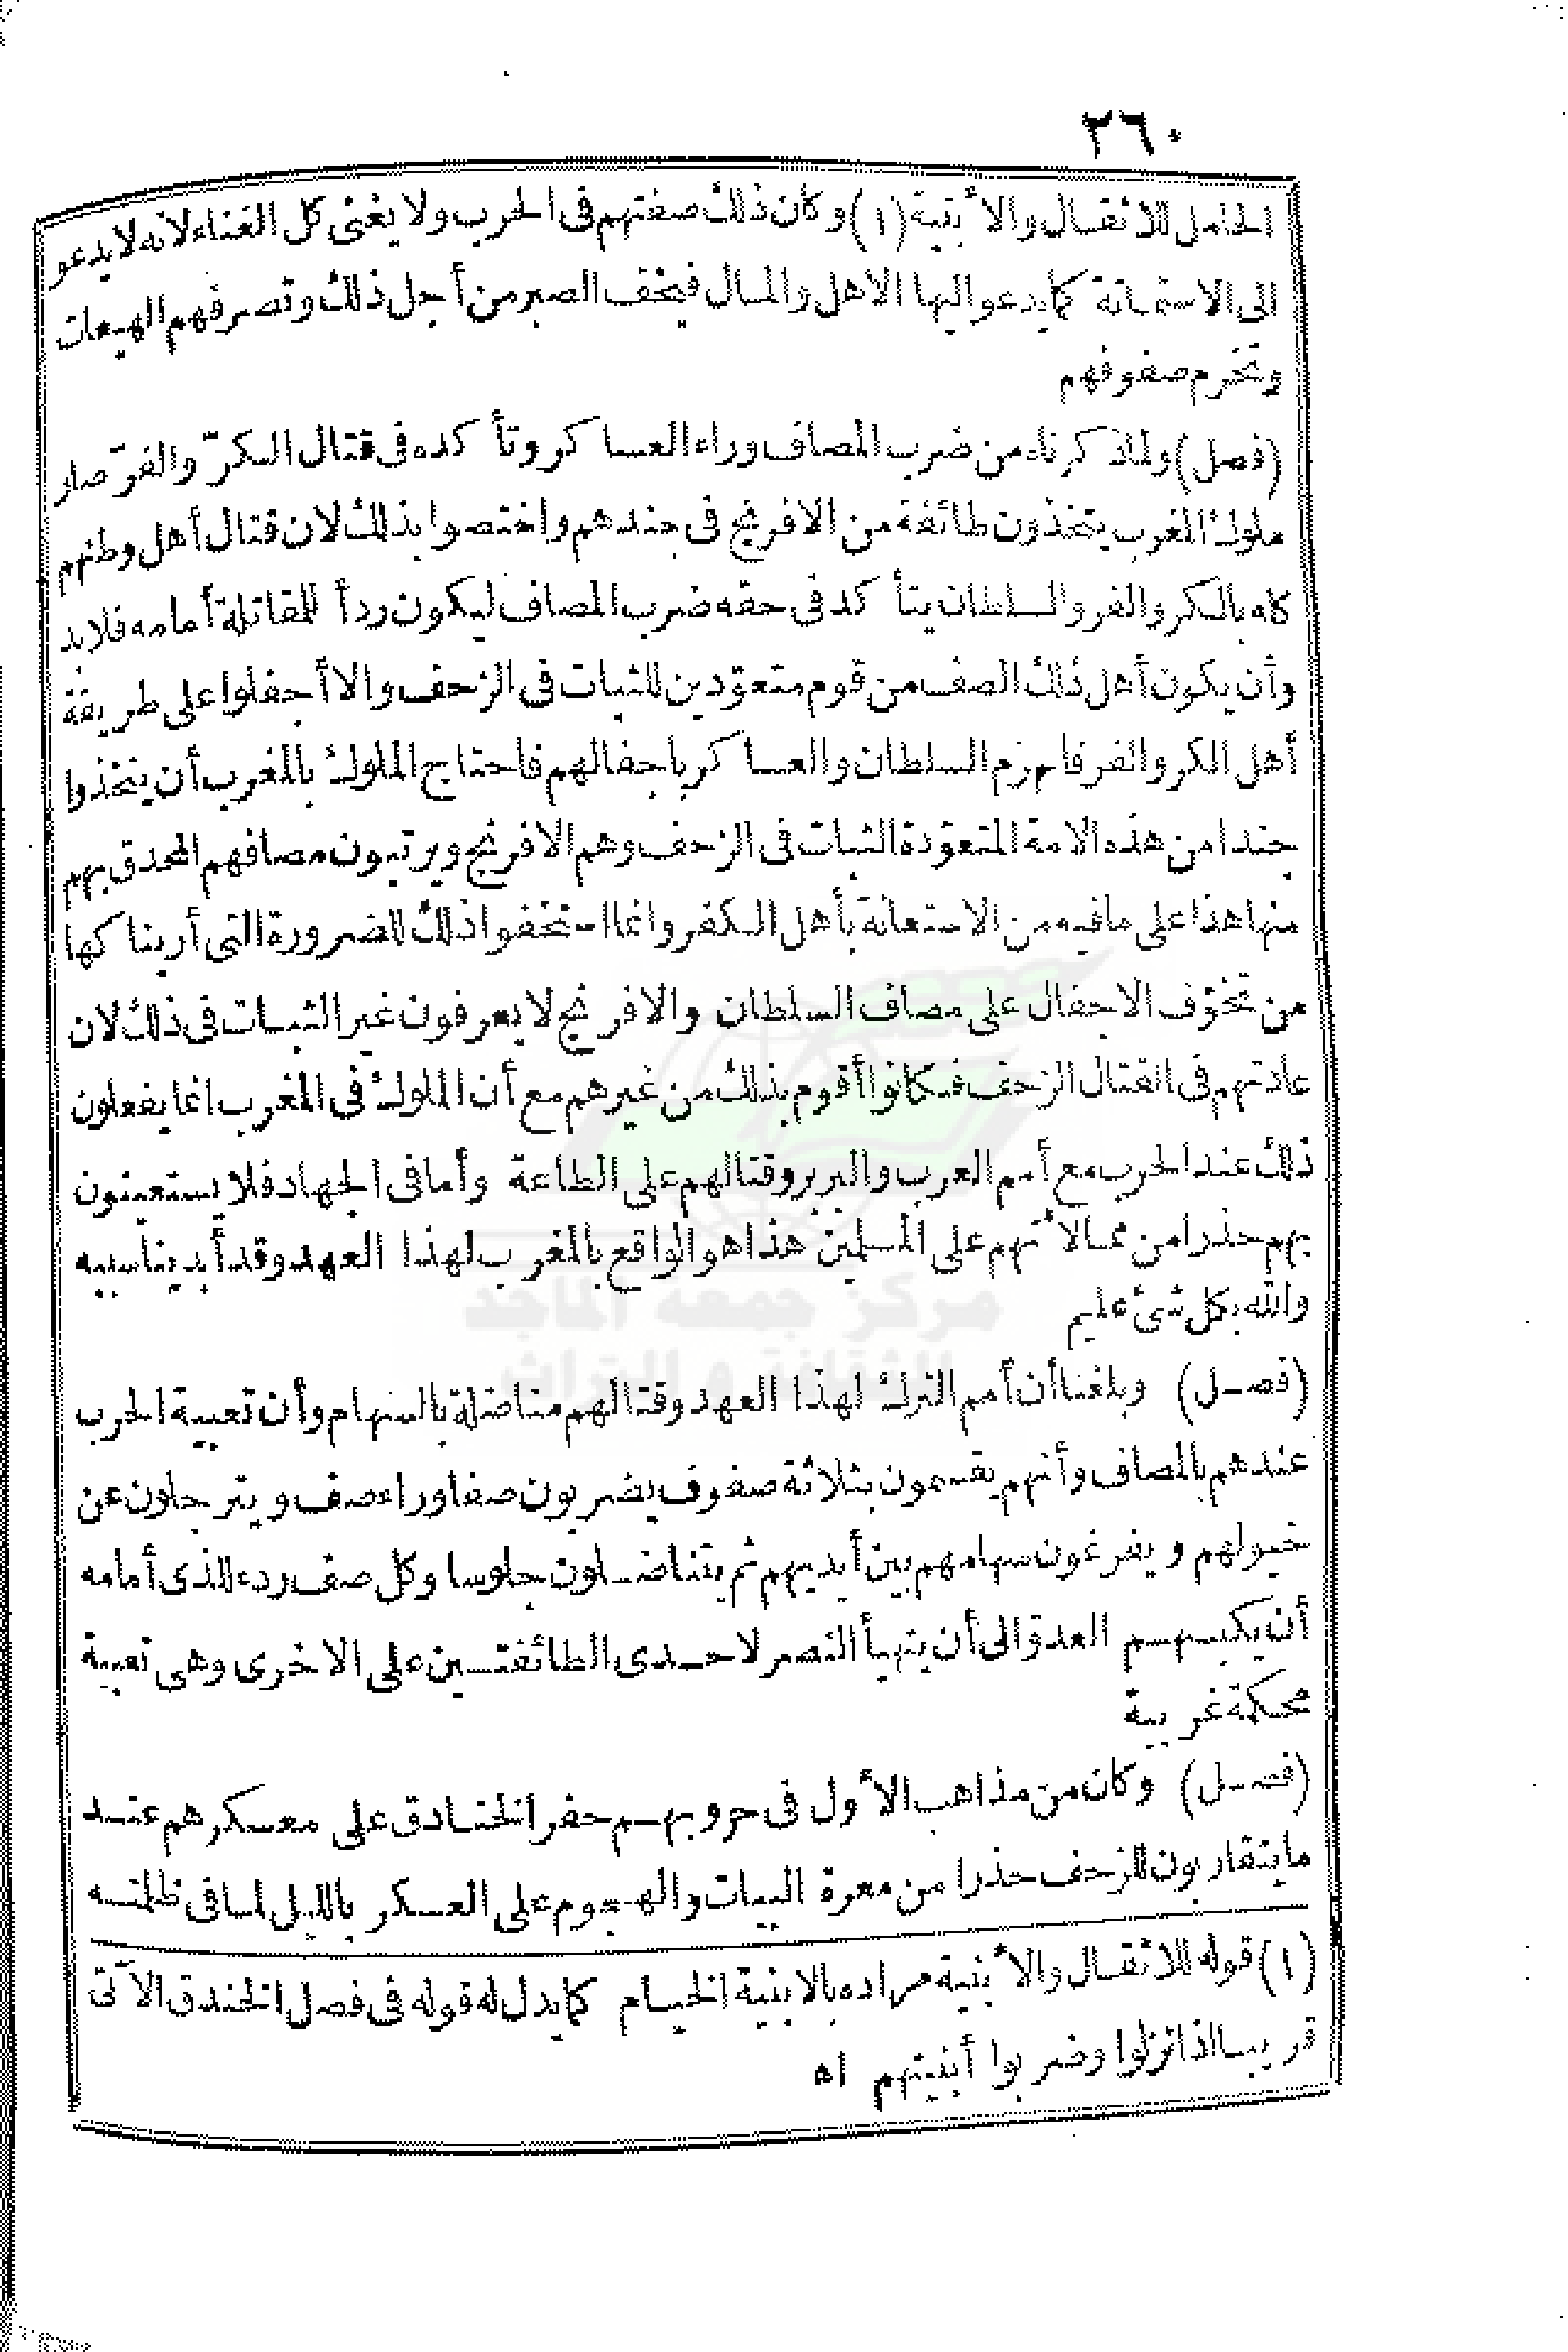 ٢٦٠
الحامل للاثقال والأبنية (١) وكان ذلك صفتهم فى الحرب ولا يغنى كل الغناء لانه لا يدعو
الى الاستماتة كما يدعو اليها الاهل والمال فيخف الصبر من أجل ذلك وتصرفهم الهيعات
وتخرم صفوفهم
(فصل) ولما ذكرناه من ضرب المصاف وراء العساكر وتأكده فى قتال الكرّ والفرّ صار
ملوك المغرب يتخذون طائفة من الافرنج فى جندهم واختصوا بذلك لان قتال أهل وطنهم
كله بالكر والفر والسلطان يتأكد فى حقه ضرب المصاف ليكون ردأ للمقاتلة أمامه فلا بد
وأن يكون أهل ذلك الصف من قوم متعوّدين للثبات فى الزحف والا أجفلوا على طريقة
أهل الكر والفر فانهزم السلطان والعساكر باجفالهم فاحتاج الملوك بالمغرب أن يتخذوا
جندا من هذه الامة المتعوّدة الثبات فى الزحف وهم الافرنج ويرتبون مصافهم المحدق بهم
منها هذا على ما فيه من الاستعانة بأهل الكفر وانما استخفوا ذلك للضرورة التى أريناكها
من تخوّف الاجفال على مصاف السلطان والافرنج لا يعرفون غير الثبات فى ذلك لان
عادتهم فى القتال الزحف فكانوا أقوم بذلك من غيرهم مع أن الملوك فى المغرب انما يفعلون
ذلك عند الحرب مع أمم العرب والبربر وقتالهم على الطاعة وأما فى الجهاد فلا يستعينون
بهم حذرا من ممالأتهم على المسلمين هذا هو الواقع بالمغرب لهذا العهد وقد أبدينا سببه
والله بكل شئ عليم
(فصل) وبلغنا أن أمم الترك لهذا العهد وقتالهم مناضلة بالسهام وأن تعبية الحرب
عندهم بالمصاف وأنهم يقسمون بثلاثة صفوف يضربون صفا وراء صف ويترجلون عن
خيولهم ويفرغون سهامهم بين أيديهم ثم يتناضلون جلوسا وكل صف ردء للذى أمامه
أن يكبسهم العدوّ الى أن يتهيأ النصر لاحدى الطائفتين على الاخرى وهى تعبية
محكمة غريبة
(فصل) وكان من مذاهب الأول فى حروبهم حفر الخنادق على معسكرهم عند
ما يتقاربون للزحف حذرا من معرة البيات والهجوم على العسكر بالليل لما فى ظلمته
(١) قوله للاثقال والأبنية مراده بالابنية الخيام كما يدل له قوله فى فصل الخندق الآتى
قريبا اذا نزلوا وضربوا أبنيتهم اه
مركز جمعة الماجد
للثقافة و التراث